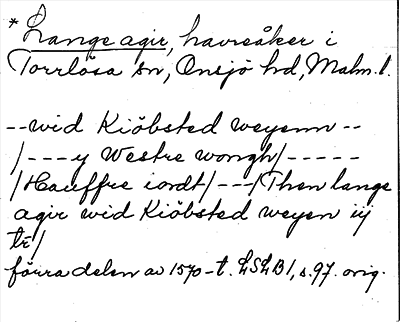 * Lange agir, havreåker i
Torrlösa sn, Onsjö hd, Malm. l.
-- wid Kiöbsted weyenn --
/ --- y Westre wongh / -----
/ Hauffre iordt / --- / Then lange
agir wid Kiöbsted weyen iij
tr̄ /
förra delen av 1570-t. LSLB 1, s. 97. orig.